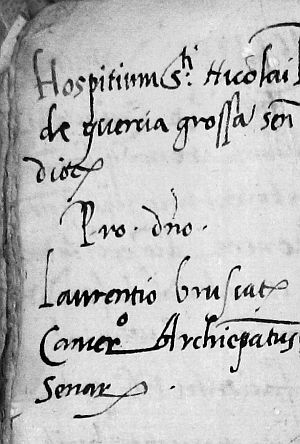 Hospitium S.ti Nicolai
de quercia grossa Sen
dioc
Pro dño.
Laurentio bruscat
Camer.o Archiepatus
Senar